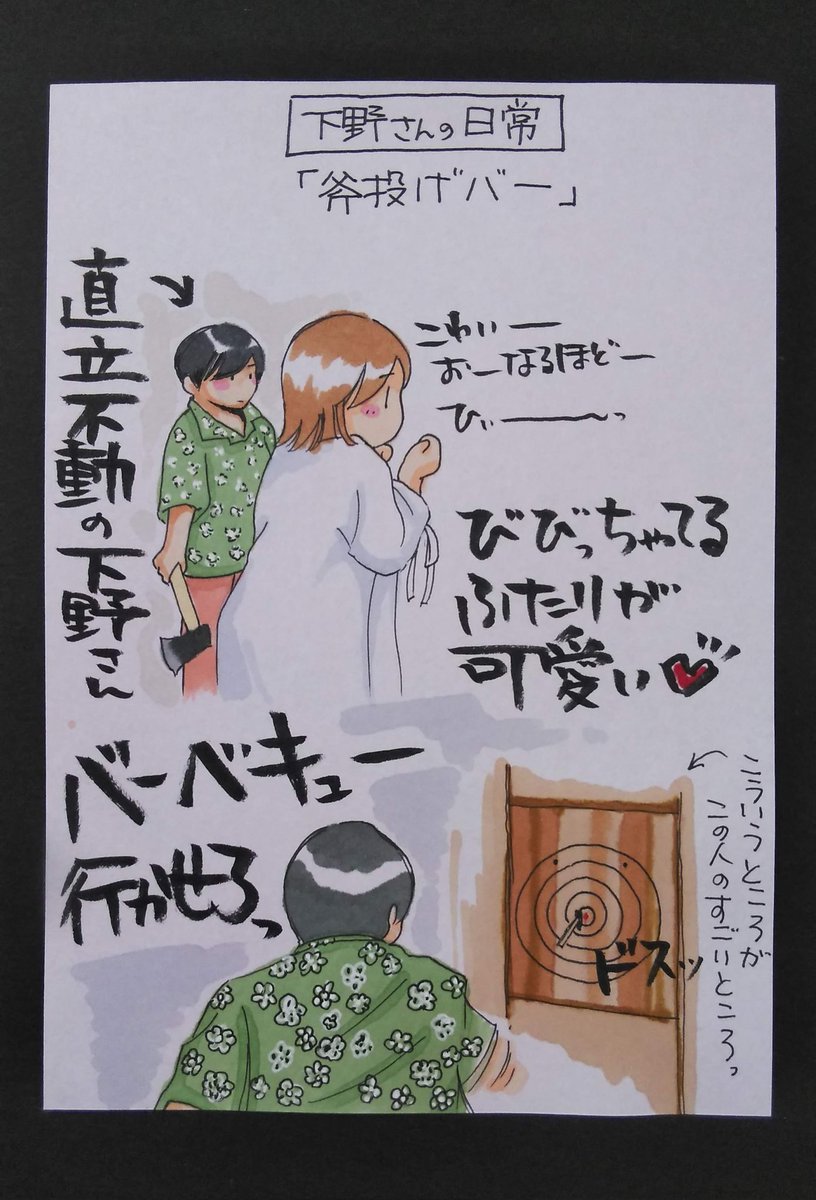 下野さんの日常
「斧投げバー」
直立不動の下野さん
こわいー
おーなるほどー
ひぃーーー〜っ
びびっちゃてる
ふたりが
可愛い
バーベキュー
行かせろっ
こういうところが
この人のすごいところっ
ドスッ